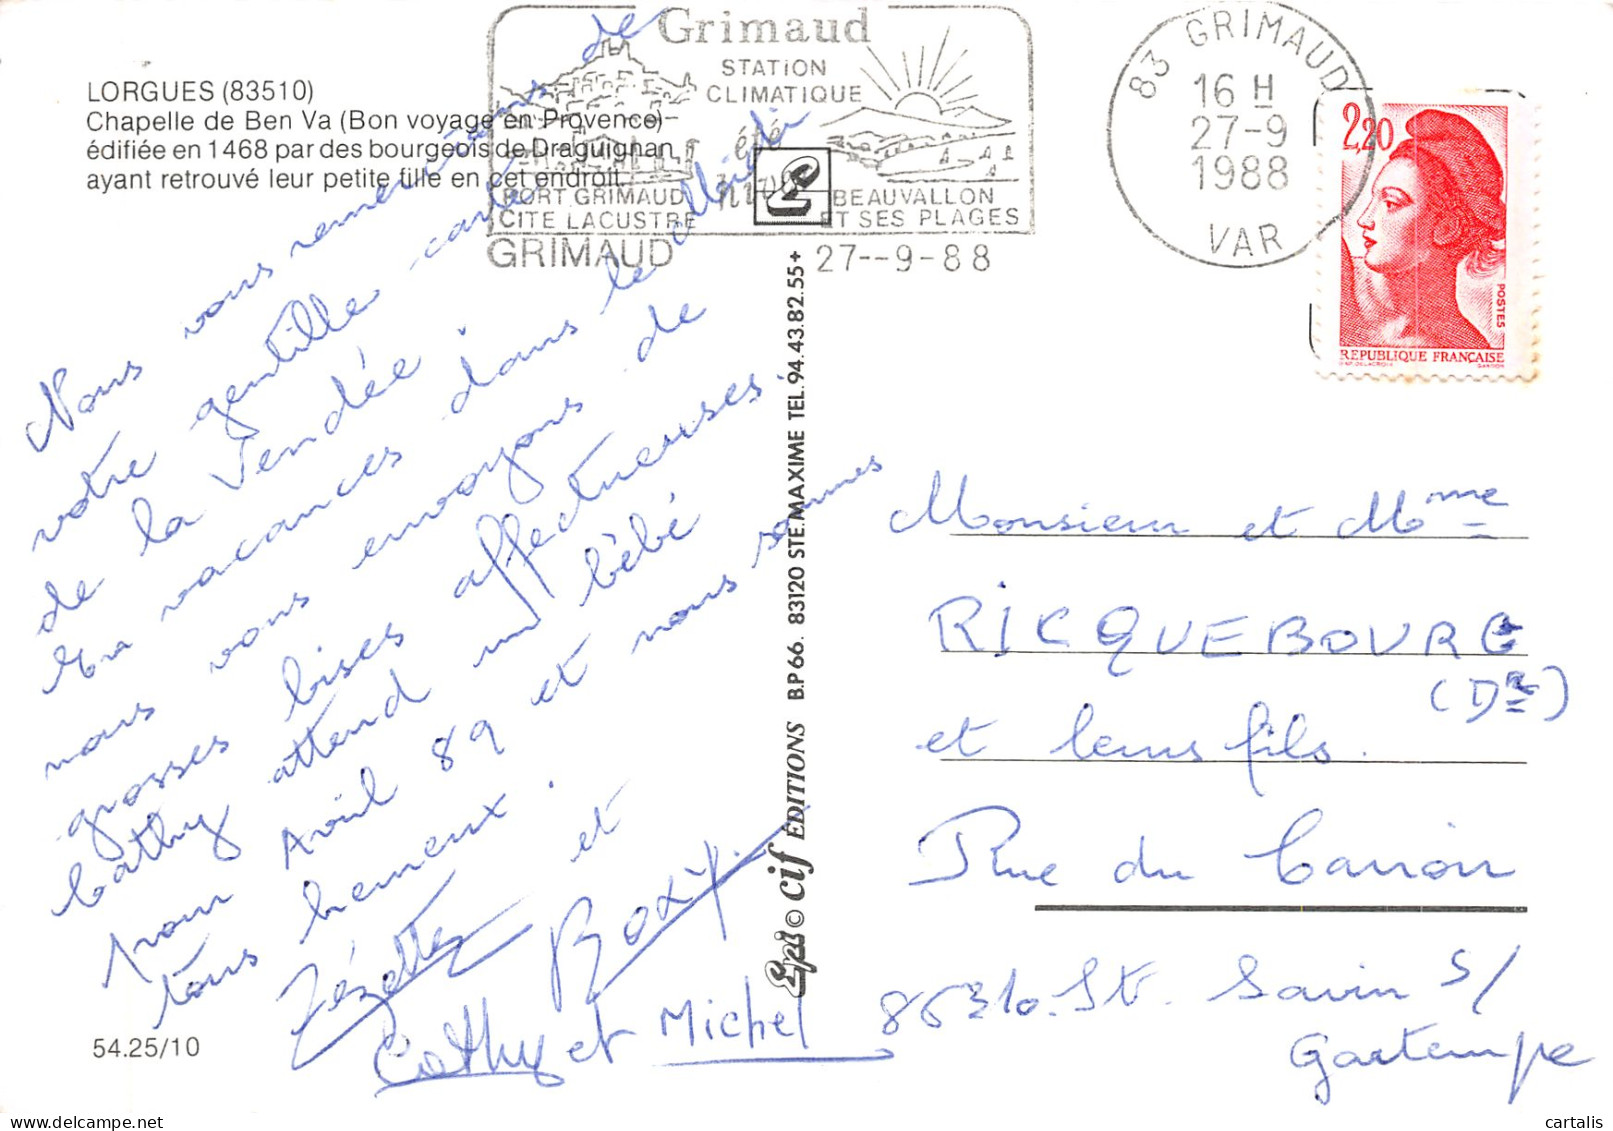 LORGUES (83510)
Chapelle de Ben Va (Bon voyage en Provence)
édifiée en 1468 par des bourgeois de Draguignan
ayant retrouvé leur petite fille en cet endroit.
Grimaud
STATION
CLIMATIQUE
été
hiver
PORT GRIMAUD
CITE LACUSTRE
BEAUVALLON
ET SES PLAGES
GRIMAUD
27--9-88
83 GRIMAUD
16 H
27-9
1988
VAR
2,20
POSTES
REPUBLIQUE FRANÇAISE
Nous vous remercions de
votre gentille carte
de la Vendée.
En vacances dans le Midi
nous vous envoyons de
grosses bises affectueuses.
Cathy attend un bébé
pour Avril 89 et nous sommes
tous heureux.
Zézette et Roxy.
Cathy et Michel
Epi © cif EDITIONS B.P 66. 83120 STE.MAXIME TEL.94.43.82.55+
Monsieur et Mme
RICQUEBOURG
(Dr)
et leurs fils.
Rue du Carroir
86310. St. Savin s/
Gartempe
54.25/10
cartalis | delcampe.net